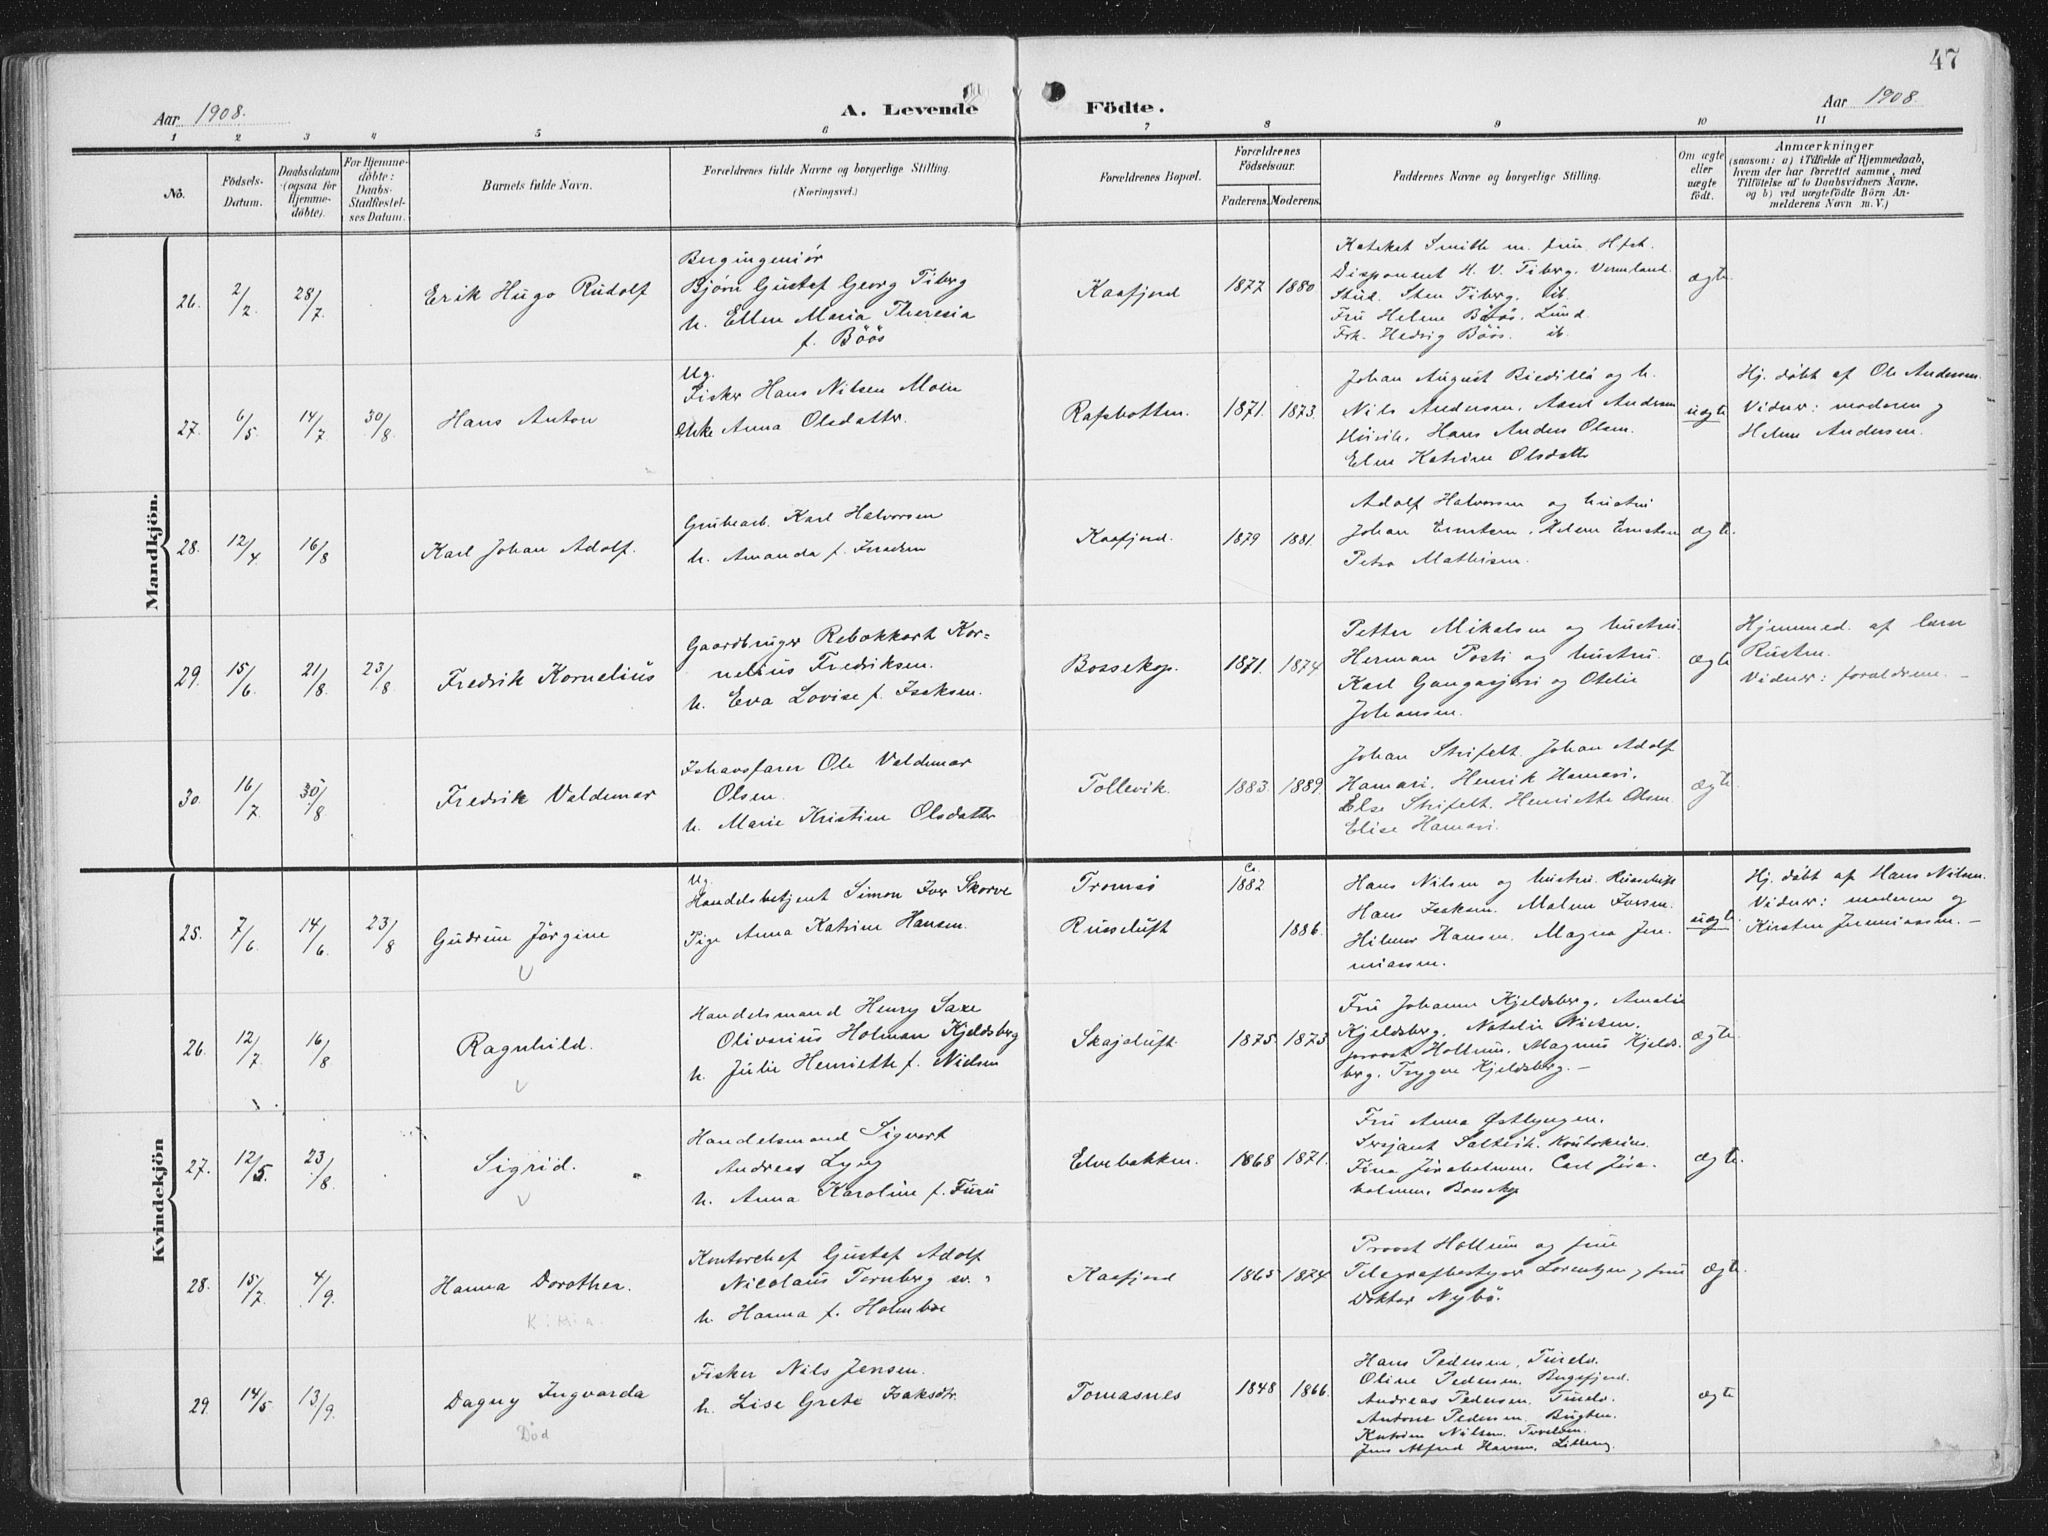 47
Aar 1908.
A. Levende Födte.
Aar 1908.
1 2 3 4 5 6 7 8 9 10 11
No.
Födsels-Datum.
Daabsdatum (ogsaa for Hjemme-döbte).
For Hjemme-döbte: Daabs-Stadfæstel-ses Datum.
Barnets fulde Navn.
Forældrenes fulde Navne og borgerlige Stilling. (Næringsvei.)
Forældrenes Bopæl.
Forældrenes Födselsaar.
Faderens. Moderens.
Faddernes Navne og borgerlige Stilling.
Om ægte eller uægte födt.
Anmærkninger
(saasom: a) i Tilfælde af Hjemmedaab, hvem der har forrettet samme, med Tilföielse af to Daabsvidners Navne, og b) ved uægtefödte Börn An-melderens Navn m. V.)
Mandkjön.
26. 2/2 28/7 Erik Hugo Rudolf
Bergingeniør
Bjørn Gustaf Georg Tiberg
h. Ellen Maria Theresia
f. Böös
Kaafjord 1877 1880
Kateket Smith m. fru. Hfst.
Disponent H. V. Tiberg, Vermland.
Stud. Sten Tiberg. ib.
Fru Helene Böös, Lund.
Frk. Hedvig Böös. ib.
ægte
27. 6/5 14/7 30/8 Hans Anton
Ug.
Fisker Hans Nilsen Moen
Enke Anna Olsdatter.
Rafsbotten. 1871. 1873.
Johan August og h.
Nils Andersen, Andersen
Hans Anders Olsen.
Elen Katrine Olsdatter
uægte
Hj. döbt af Ole Andersen.
Vidner: moderen og
Helene Andersen.
28. 12/4 16/8 Karl Johan Adolf.
Grubearb. Karl Halvorsen
h. Amanda f.
Kaafjord. 1879 1881.
Adolf Halvorsen og hustru
Johan Ernstsen, Helene Ernstsen
Petra Mathisen.
ægte.
29. 15/6 21/8 23/8 Fredrik Kornelius
Gaardbruger Rebækkart Kor=
nelius Fredriksen.
h. Eva Lovise f. Isaksen.
Bossekop. 1871. 1874
Petter Mikalsen og hustru.
Herman Posti og hustru.
Karl og Otelie
Johansen.
ægte
Hjemmed. af lærer
Rusten.
Vidner: forældrene. —
30. 16/7 30/8 Fredrik Valdemar
Ishavsfarer Ole Valdemar
Olsen.
h. Marie Kristine Olsdatter
Tollevik. 1883. 1889.
Johan Strifelt. Johan Adolf
Hamari, Henrik Hamari.
Else Strifelt. Henriette Olsen
Elise Hamari.
ægte.
Kvindekjön
25. 7/6 14/6 23/8 Gudrun Jörgine
Ug.
Handelsbetjent Simon Iver Skorve
Pige Anna Katrine Hansen.
Tromsö
Russeluft
Ca. 1882
1886.
Hans Nilsen og hustru. Russeluft
Hans Isaksen. Malene Iversen.
Hilmer Hansen. Magna Jere
miassen.
uægte
Hj. döbt af Hans Nilsen.
Vidner: moderen og
Kirsten Jeremiassen. —
26. 12/7 16/8 Ragnhild.
Handelsmand Henry Saxe
Oliverius Holman Kjeldsberg
h. Julie Henriette f. Nielsen
Skajaluft 1875. 1873
Fru Johanne Kjeldsberg, Amalie
Kjeldsberg, Natalie Nielsen,
provst Hollum, Magnus Kjelds
berg. Trygve Kjeldsberg. —
ægte
27. 12/5. 23/8 Sigrid.
Handelsmand Sigvart
Andreas Lyng
h. Anna Karoline f. Furu
Elvebakken. 1868 1871.
Fru Anna Østlyngen.
Sersjant Kautokeino
Fina Carl
Bossekop
ægte.
28. 15/7 4/9. Hanna Dorothea.
Kontorchef Gustaf Adolf
Nicolaus Ternberg sv.
h. Hanna f. Holmboe
Kaafjord 1865 1874
Provst Hollum og frue
Telegrafbestyrer Lorentzen og frue
Doktor Nybö.
ægte.
29. 14/5 13/9. Dagny Ingvarda
Död
Fisker Nils Jensen.
h. Lise Grete Isaksdtr.
Tomasnes 1848 1866.
Hans Pedersen,
Oline Pedersen,
Andreas Pedersen,
Antone Pedersen
Katrine Nilsen,
Jens Alfred Hansen,
ægte